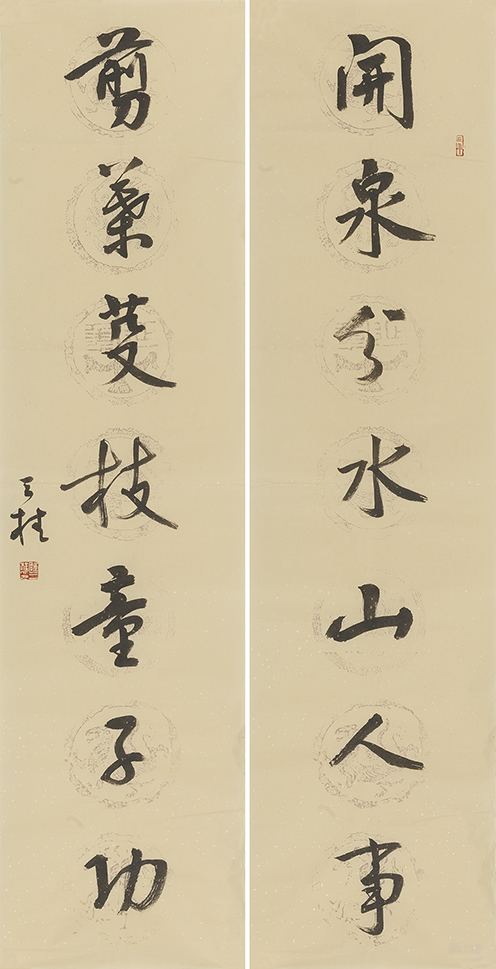 開泉分水山人事
剪葉芟枝童子功
桂